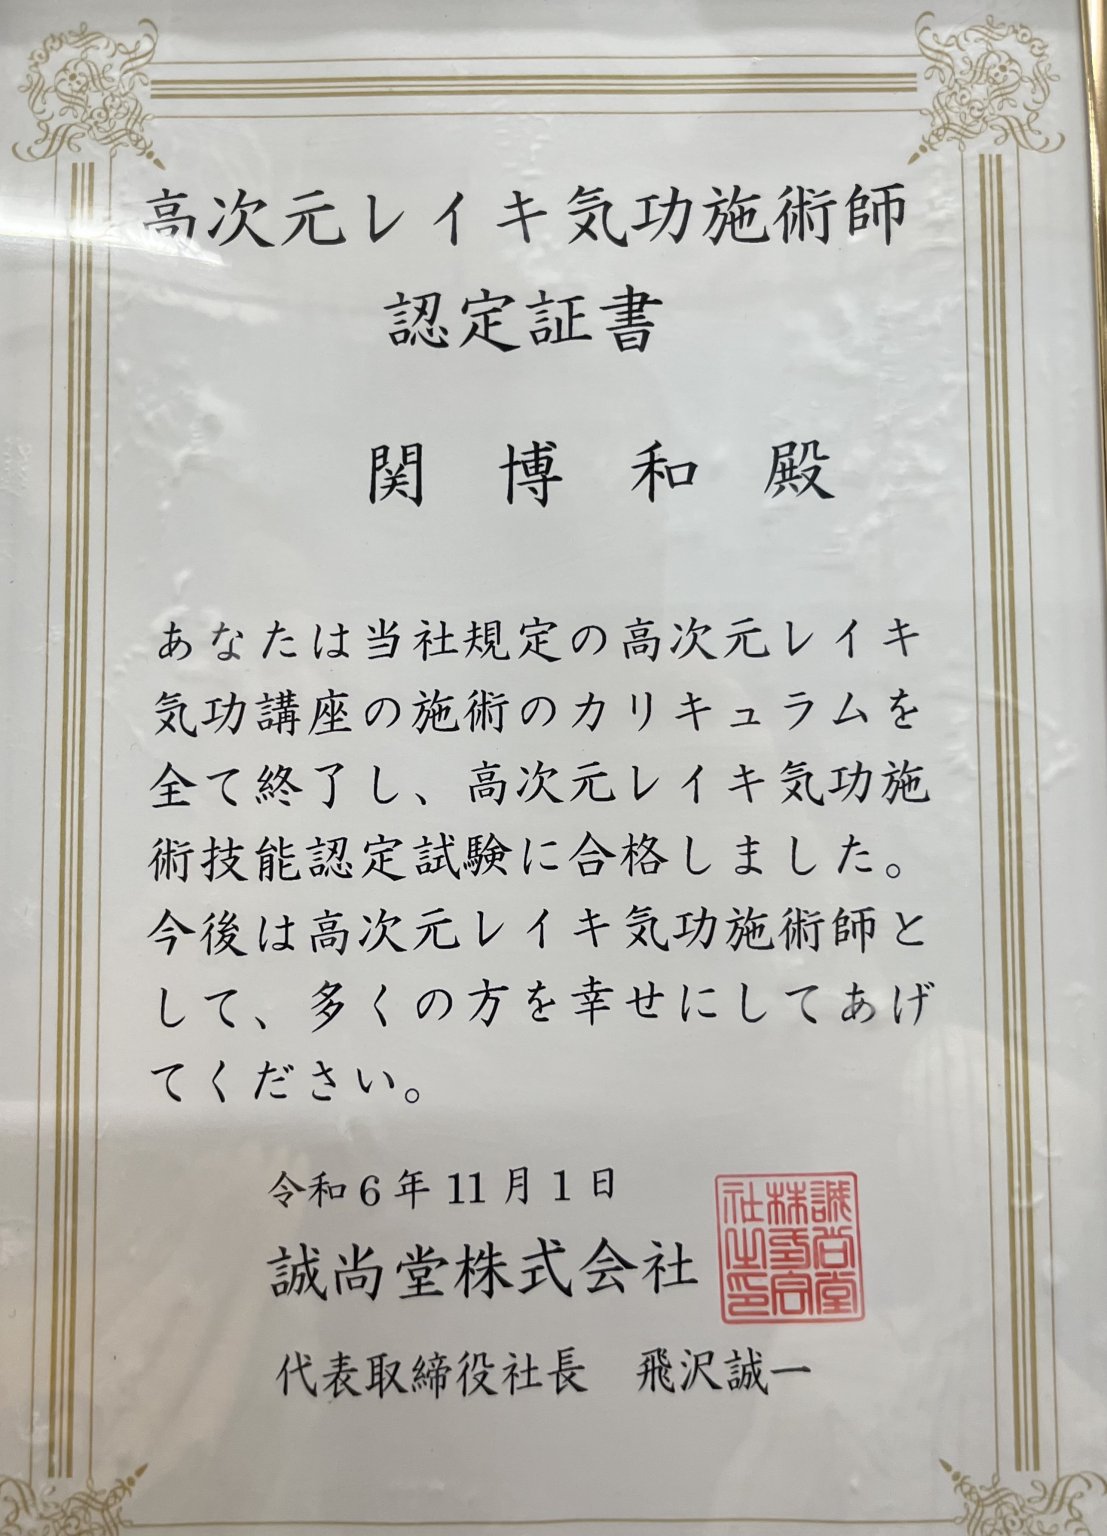 高次元レイキ気功施術師
認定証書
関 博 和 殿
あなたは当社規定の高次元レイキ
気功講座の施術のカリキュラムを
全て終了し、高次元レイキ気功施
術技能認定試験に合格しました。
今後は高次元レイキ気功施術師と
して、多くの方を幸せにしてあげ
てください。
令和6年11月1日
誠尚堂株式会社
代表取締役社長 飛沢誠一